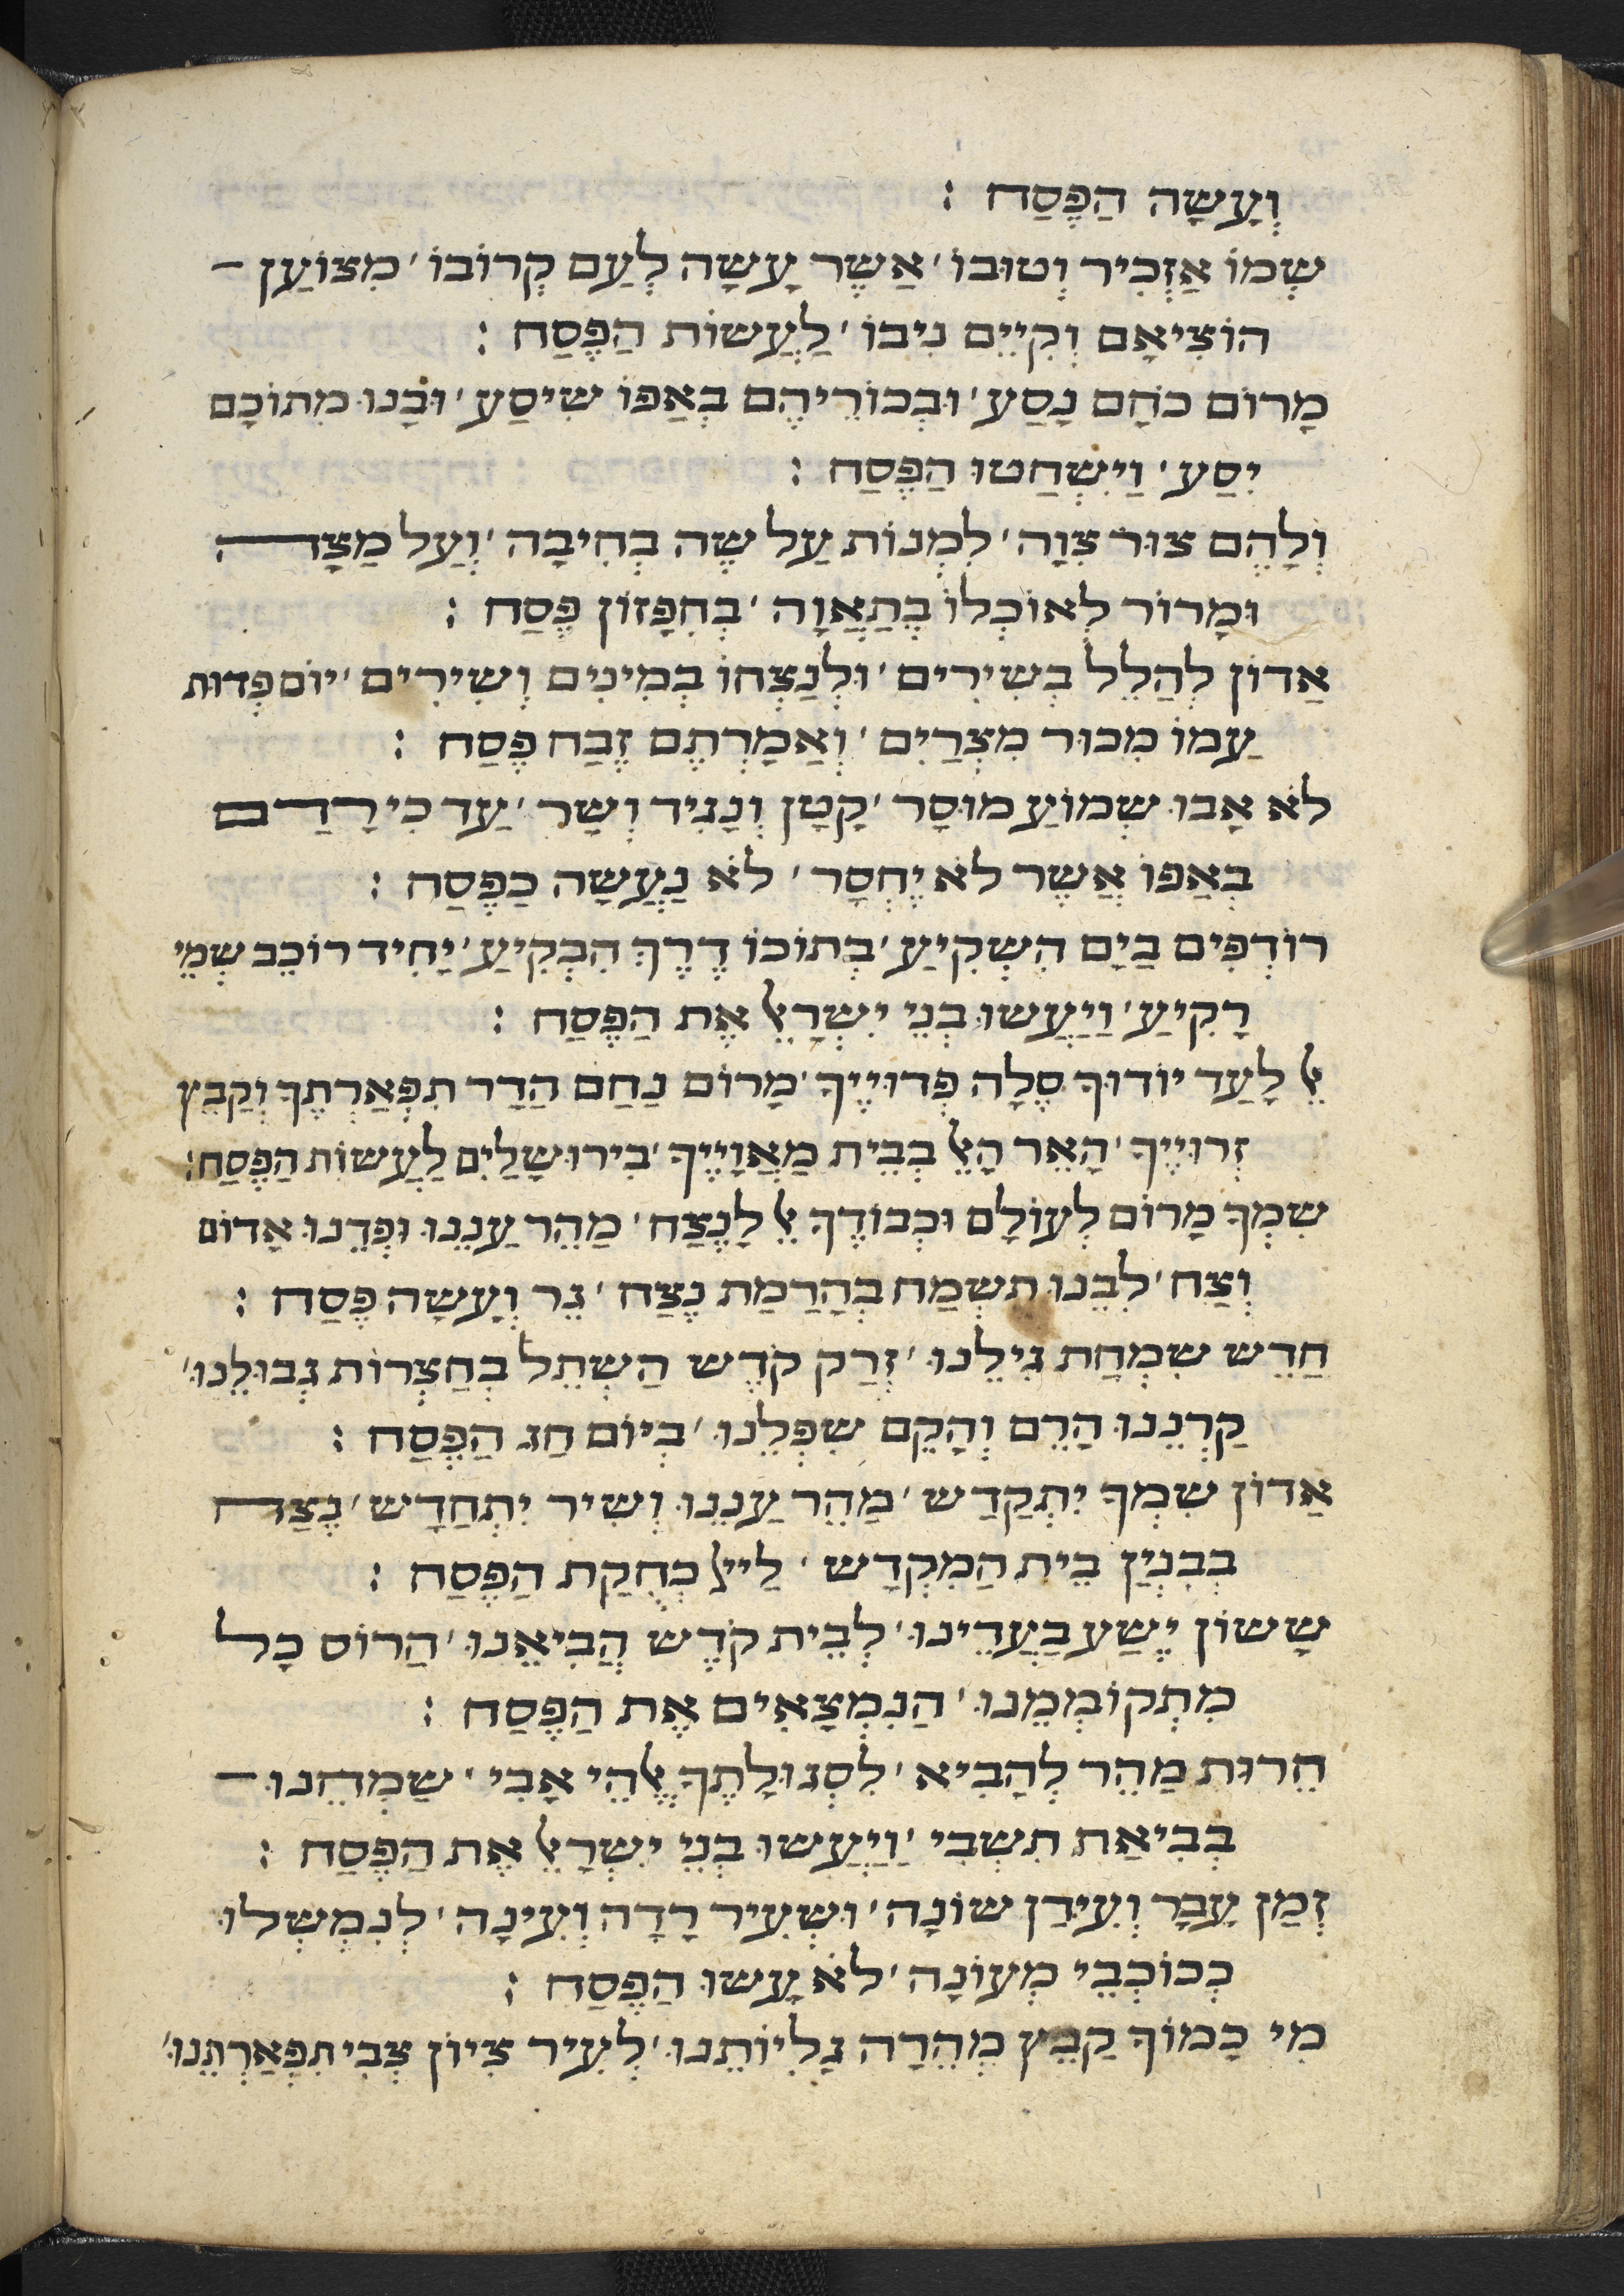 וְעָשָׂה הַפֶּסַח :
שְׁמוֹ אַזְכִּיר וְטוּבוֹ ׳ אֲשֶׁר עָשָׂה לְעַם קְרוֹבוֹ ׳ מִצּוֹעַן –
הוֹצִיאָם וְקִיֵּים נִיבוֹ ׳ לַעֲשׂוֹת הַפֶּסַח :
מָרוֹם כֹּחָם נָסַע ׳ וּבְכוֹרֵיהֶם בְּאַפּוֹ שִׁיסַּע ׳ וּבָנוּ מִתּוֹכָם
יִסַּע ׳ וַיִּשְׁחֲטוּ הַפֶּסַח :
וְלָהֶם צוּר צִוָּה ׳ לִמְנוֹת עַל שֶׂה בְחִיבָה ׳ וְעַל מַצָּה
וּמָרוֹר לְאוֹכְלוֹ בְתַאֲוָה ׳ בְּחִפָּזוֹן פֶּסַח :
אָדוֹן לְהַלֵּל בְּשִׁירִים ׳ וּלְנַצְּחוֹ בְמִינִים וְשִׁירִים ׳ יוֹם פְּדוּת
עַמּוֹ מִכּוּר מִצְרַיִם ׳ וַאֲמַרְתֶּם זֶבַח פֶּסַח :
לֹא אָבוּ שְׁמוֹעַ מוּסָר ׳ קָטָן וְנָגִיד וְשָׂר ׳ עַד כִּי רָדַם
בְּאַפּוֹ אֲשֶׁר לֹא יֶחְסָר ׳ לֹא נַעֲשָׂה כַפֶּסַח :
רוֹדְפִים בַּיָּם הִשְׁקִיעַ ׳ בְּתוֹכוֹ דֶרֶךְ הִבְקִיעַ ׳ יָחִיד רוֹכֵב שְׁמֵי
רָקִיעַ ׳ וַיַּעֲשׂוּ בְנֵי יִשְׂרָאֵל אֶת הַפֶּסַח :
אֵל לָעַד יוֹדוּךָ סֶלָה פְּדוּיֶיךָ ׳ מָרוֹם נַחֵם הֲדַר תִּפְאַרְתֶּךָ וְקַבֵּץ
זְרוּיֶיךָ ׳ הָאֵר הָאֵל בְּבֵית מַאֲוָיֶיךָ ׳ בִּירוּשָׁלַיִם לַעֲשׂוֹת הַפֶּסַח :
שִׁמְךָ מָרוֹם לְעוֹלָם וּכְבוֹדֶךָ אֵל לָנֶצַח ׳ מַהֵר עֲנֵנוּ וּפְדֵנוּ אָדוֹם
וְצַח ׳ לִבֵּנוּ תְשַׂמַּח בַּהֲרָמַת נֶצַח ׳ גֵּר וְעָשָׂה פֶּסַח :
חַדֵּשׁ שִׂמְחַת גִּילֵנוּ ׳ זְרַק קֹדֶשׁ הַשְׁתֵּל בְּחַצְרוֹת גְּבוּלֵנוּ ׳
קַרְנֵנוּ הָרֵם וְהָקֵם שִׁפְלֵנוּ ׳ בְּיוֹם חַג הַפֶּסַח :
אָדוֹן שִׁמְךָ יִתְקַדַּשׁ ׳ מַהֵר עֲנֵנוּ וְשִׁיר יִתְחַדָּשׁ ׳ נֶצַח
בְּבִנְיַן בֵּית הַמִּקְדָּשׁ ׳ לַייָ כְּחֻקַּת הַפֶּסַח :
שְׂשׂוֹן יֶשַׁע בַּעֲדֵינוּ ׳ לְבֵית קֹדֶשׁ הֲבִיאֵנוּ ׳ הֲרוֹס כָּל
מִתְקוֹמְמֵנוּ ׳ הַנִּמְצָאִים אֶת הַפֶּסַח :
חֵרוּת מַהֵר לְהָבִיא ׳ לִסְגוּלָתֶךָ אֱלֹהֵי אָבִי ׳ שַׂמְּחֵנוּ –
בְּבִיאַת תִּשְׁבִּי ׳ וַיַּעֲשׂוּ בְנֵי יִשְׂרָאֵל אֶת הַפֶּסַח :
זְמַן עָבַר וְעִידָּן שׁוֹנָה ׳ וּשְׂעִיר רָדָה וְעִינָּה ׳ לְנִמְשְׁלוּ
כְּכוֹכְבֵי מְעוֹנָה ׳ לֹא עָשׂוּ הַפֶּסַח :
מִי כָמוֹךָ קַבֵּץ מְהֵרָה גָּלִיּוֹתֵנוּ ׳ לְעִיר צִיּוֹן צְבִי תִּפְאַרְתֵּנוּ ׳